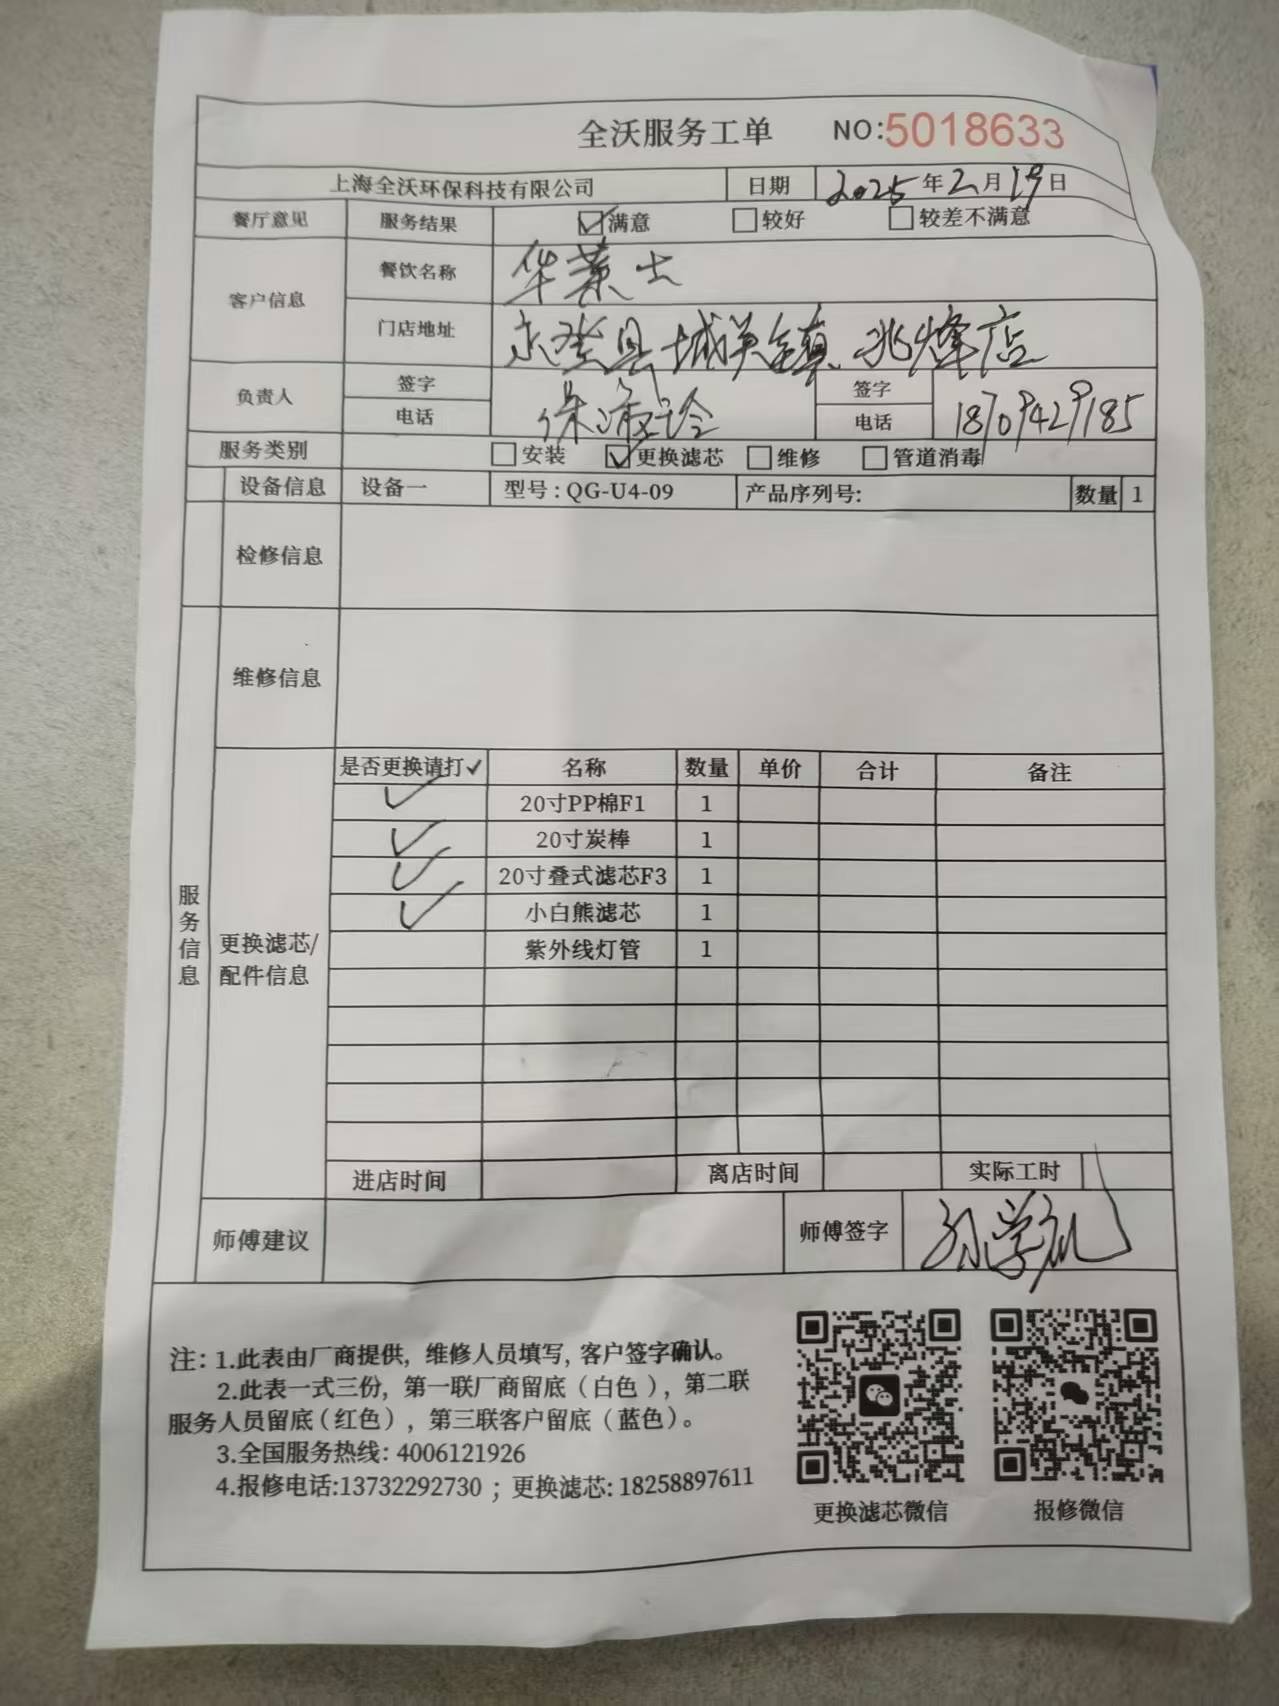 全沃服务工单 NO:5018633
上海全沃环保科技有限公司 日期 2025年2月19日
餐厅意见 服务结果 ☑满意 □较好 □较差不满意
客户信息 餐饮名称 华莱士
门店地址 永登县城关镇兆烽店
负责人 签字 签字
电话 电话 18709429185
服务类别 □安装 ☑更换滤芯 □维修 □管道消毒
设备信息 设备一 型号:QG-U4-09 产品序列号: 数量 1
检修信息
维修信息
服务信息
更换滤芯/配件信息
是否更换请打✓ 名称 数量 单价 合计 备注
✓ 20寸PP棉F1 1
✓ 20寸炭棒 1
✓ 20寸叠式滤芯F3 1
✓ 小白熊滤芯 1
紫外线灯管 1
进店时间 离店时间 实际工时
师傅建议 师傅签字
注:1.此表由厂商提供,维修人员填写,客户签字确认。
2.此表一式三份,第一联厂商留底(白色),第二联
服务人员留底(红色),第三联客户留底(蓝色)。
3.全国服务热线:4006121926
4.报修电话:13732292730;更换滤芯:18258897611
更换滤芯微信 报修微信